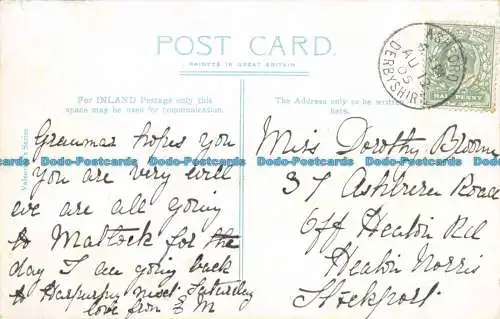 POST CARD.
PRINTED IN GREAT BRITAIN
For INLAND Postage only this
space may be used for communication.
The Address only to be written
here.
Valentine's Series
Grannma hopes you
you are very will
we are all going
to Matlock for the
day I am going back
to Harpurhey next Saturday
love from E M
Miss Dorothy Bloom
37 Ashburn Road
Off Heaton Rd
Heaton Norris
Stockport
DERBYSHIRE
AU 12
05
HALFPENNY
Dodo-Postcards Dodo-Postcards Dodo-Postcards Dodo-Postcards
Dodo-Postcards Dodo-Postcards Dodo-Postcards Dodo-Postcards